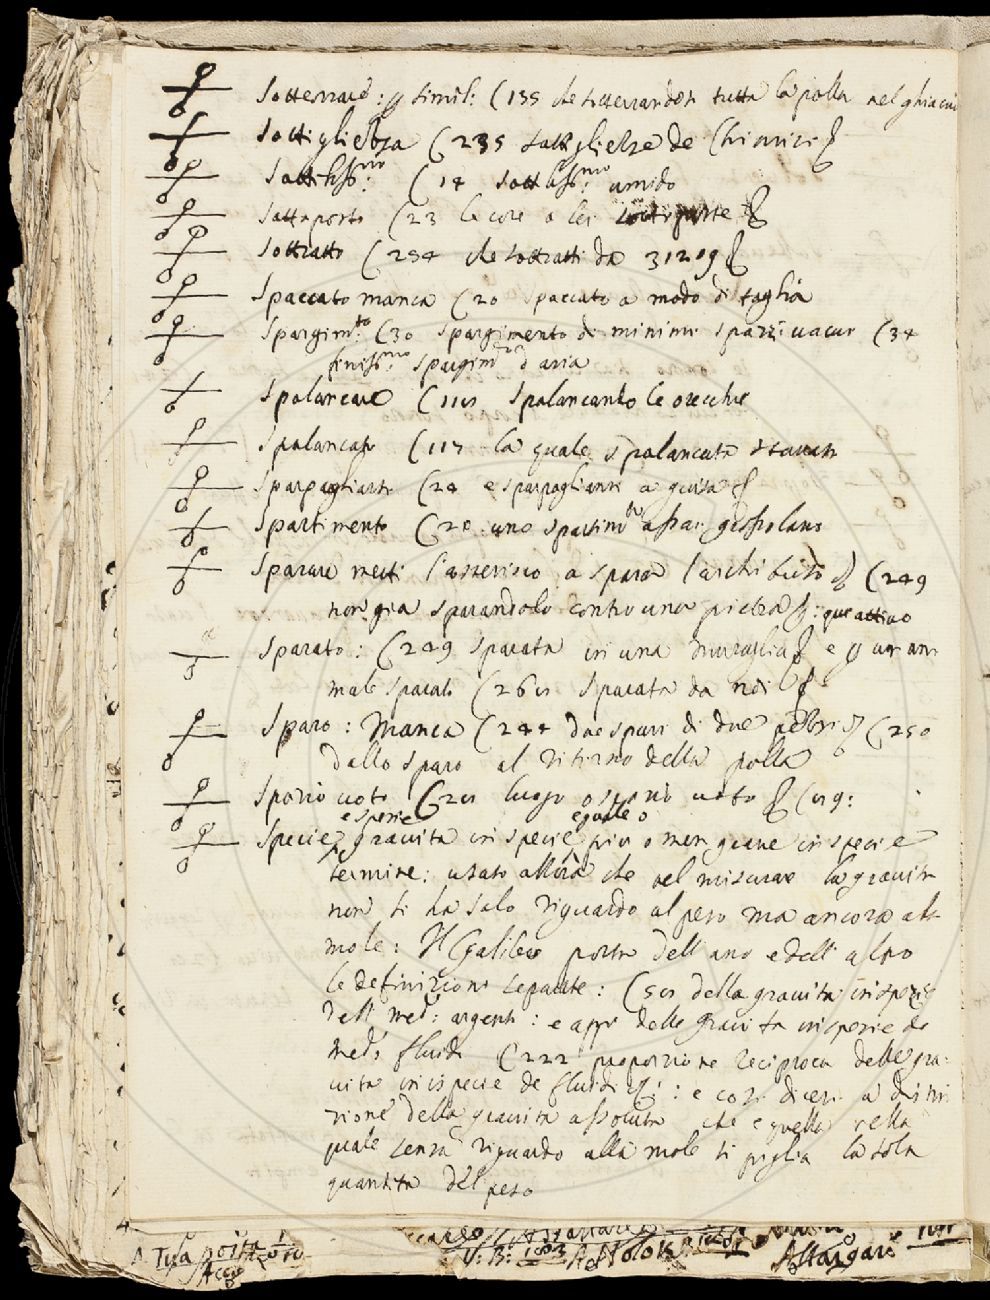 Sotterrare: p simil: (135 che sotterrandosi tutta la palla nel ghiaccio
Sottigliezza (235 sottigliezze de Chimici
Sottiliss.mo: (14 sottiliss.mo: umido
Sottoposto (23 le cose a lei sottoposte
Sottratto (254 che sottratti da 31209
Spaccato manca (20 spaccato a modo di taglia
Spargim.to: (30 spargimento di minimi spazzi vacui (34
finiss.mo: spargim.to d'aria
Spalancare (116 spalancando le orecchie
Spalancato (115 la quale spalancata stavasi
Sparpagliante (24 e sparpagliante a guisa
Spartimento (20 uno spartim.to assai grossolano
Sparare metti l'asterisco a sparar l'archibuso (249
non già sparandolo contro una pietra : que attivo
Sparato: (249 sparata in una muraglia e p un ani
male sparato (266 sparata da noi
Sparo: Manca (244 due spari di due (250
dallo sparo al ritorno della palla
Spazio voto (26 luogo o spazio voto (69:
e specie eguale o
Specie gravita in specie piu o men grave in specie
termine: usato allora che nel misurare la gravita
non si ha solo riguardo al peso ma ancora alla
mole: Il Galileo porta dell uno e dell altro
le definizioni separate: (56 della gravita in spezie
dell med: argento: e app delle gravita in specie de
med.i fluidi (222 proporzione reciproca delle gra-
vita in ispecie de fluidi: e cosi dicesi a distin
zione della gravita assoluta che e quella nella
quale senza riguardo alla mole si piglia la sola
quantita del peso